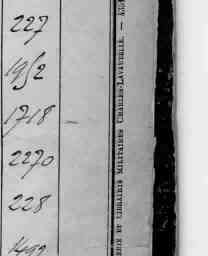 227
1952
1718 —
2270
228
1492
RIE ET LIBRAIRIE MILITAIRES CHARLES-LAVAUZELLE. —